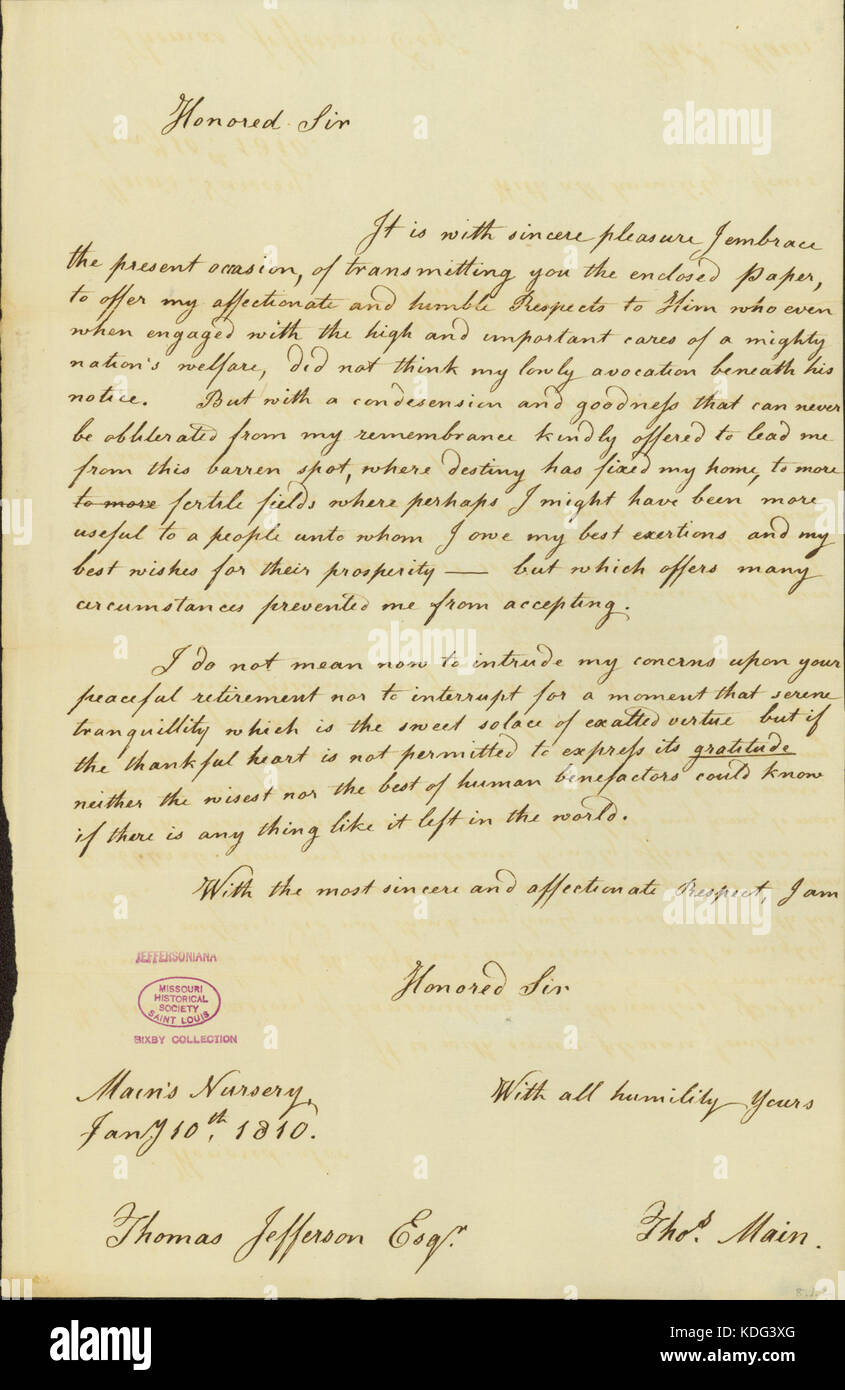 Honored Sir
It is with sincere pleasure I embrace
the present occasion, of transmitting you the enclosed Paper,
to offer my affectionate and humble Respects to Him who even
when engaged with the high and important cares of a mighty
nation's welfare, did not think my lowly avocation beneath his
notice. But with a condesension and goodness that can never
be obliterated from my remembrance kindly offered to lead me
from this barren spot, where destiny has fixed my home, to more
to more fertile fields where perhaps I might have been more
useful to a people unto whom I owe my best exertions and my
best wishes for their prosperity — but which offers many
circumstances prevented me from accepting.
I do not mean now to intrude my concerns upon your
peaceful retirement nor to interrupt for a moment that serene
tranquillity which is the sweet solace of exalted virtue but if
the thankful heart is not permitted to express its gratitude
neither the wisest nor the best of human benefactors could know
if there is any thing like it left in the world.
With the most sincere and affectionate Respect, I am
JEFFERSONIANA
Honored Sir
MISSOURI
HISTORICAL
SOCIETY
SAINT LOUIS
BIXBY COLLECTION
Main's Nursery,
With all humility Yours
Jany 10th, 1810.
Thomas Jefferson Esqr.
Thos. Main.
alamy
Image ID: KDG3XG
www.alamy.com